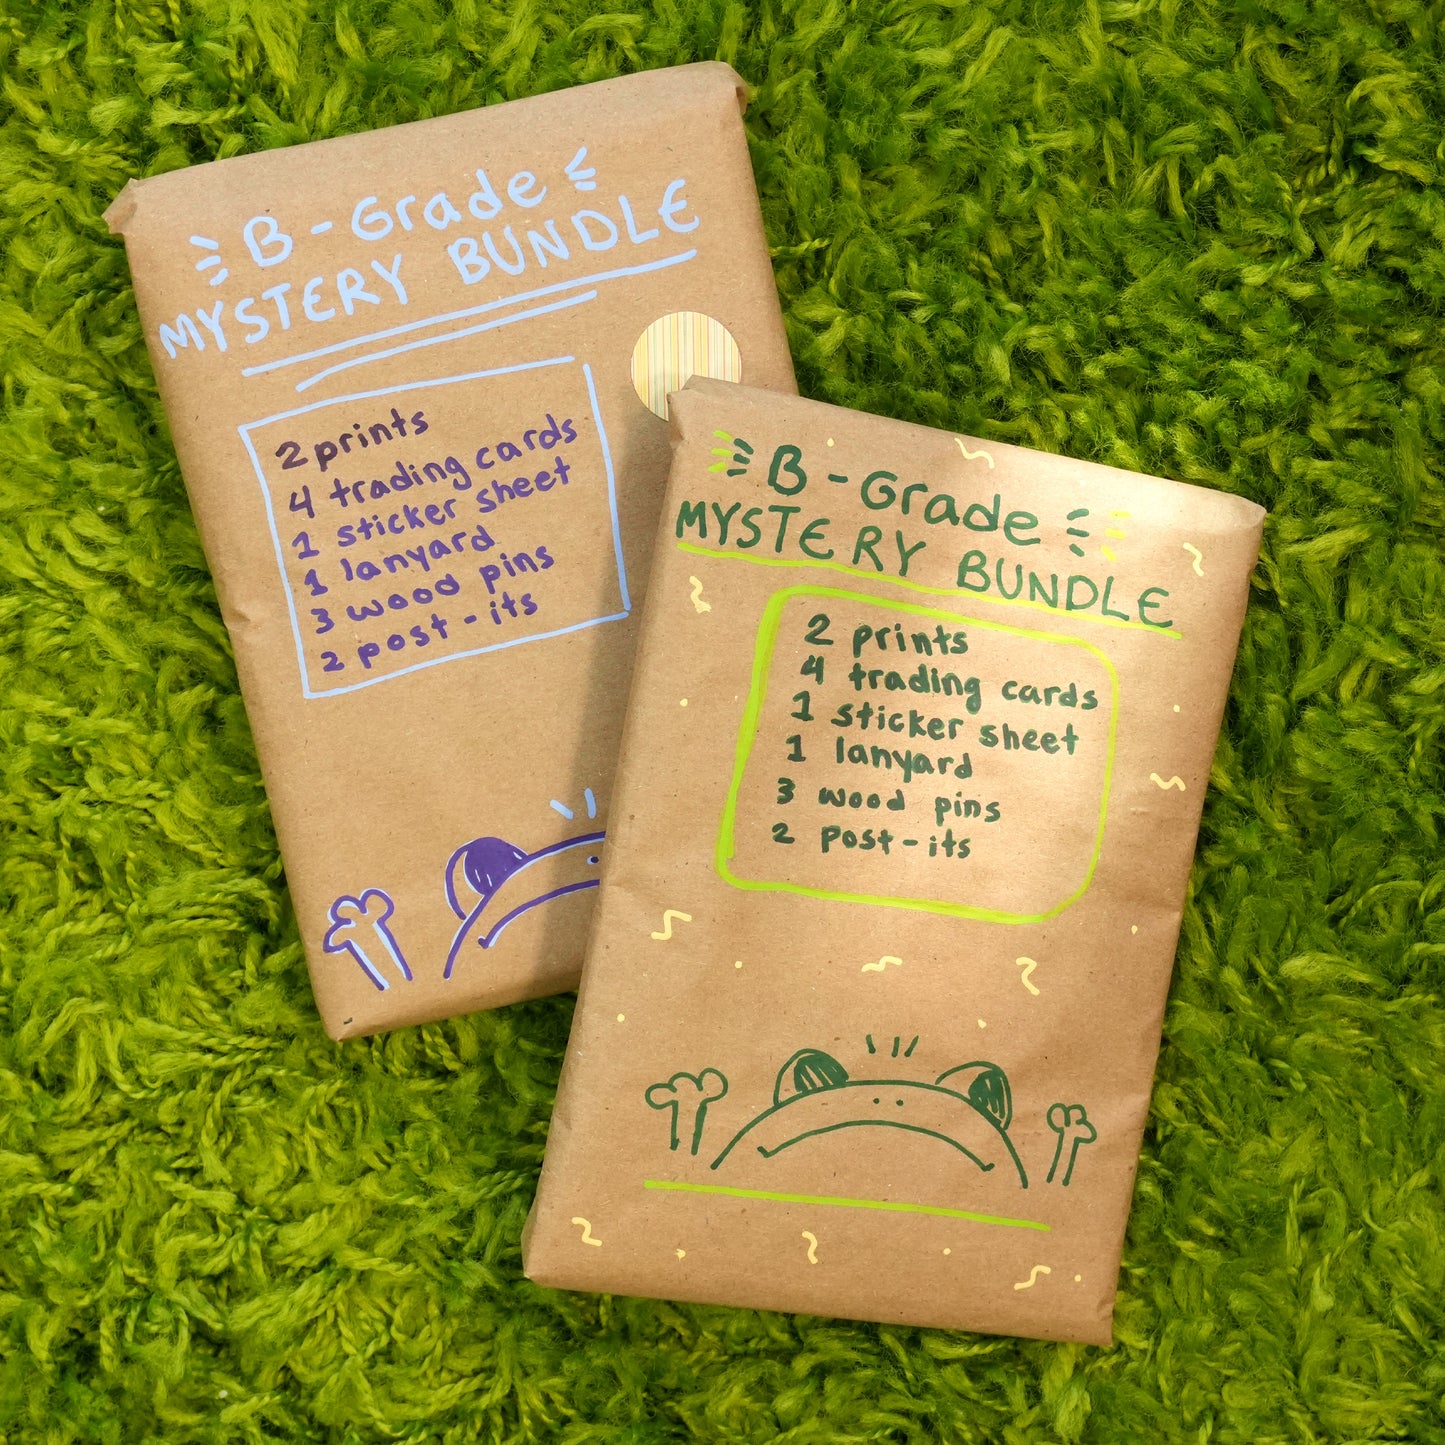 B-Grade
MYSTERY BUNDLE
2 prints
4 trading cards
1 sticker sheet
1 lanyard
3 wood pins
2 post-its
B-Grade
MYSTERY BUNDLE
2 prints
4 trading cards
1 sticker sheet
1 lanyard
3 wood pins
2 post-its